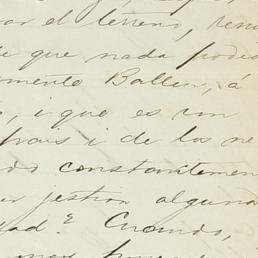 ar el terreno, ren
que nada podia
mento Ballen, á
, i que es un
pais i de los ne
do constantemen
gestion alguna
ad. Cuando,